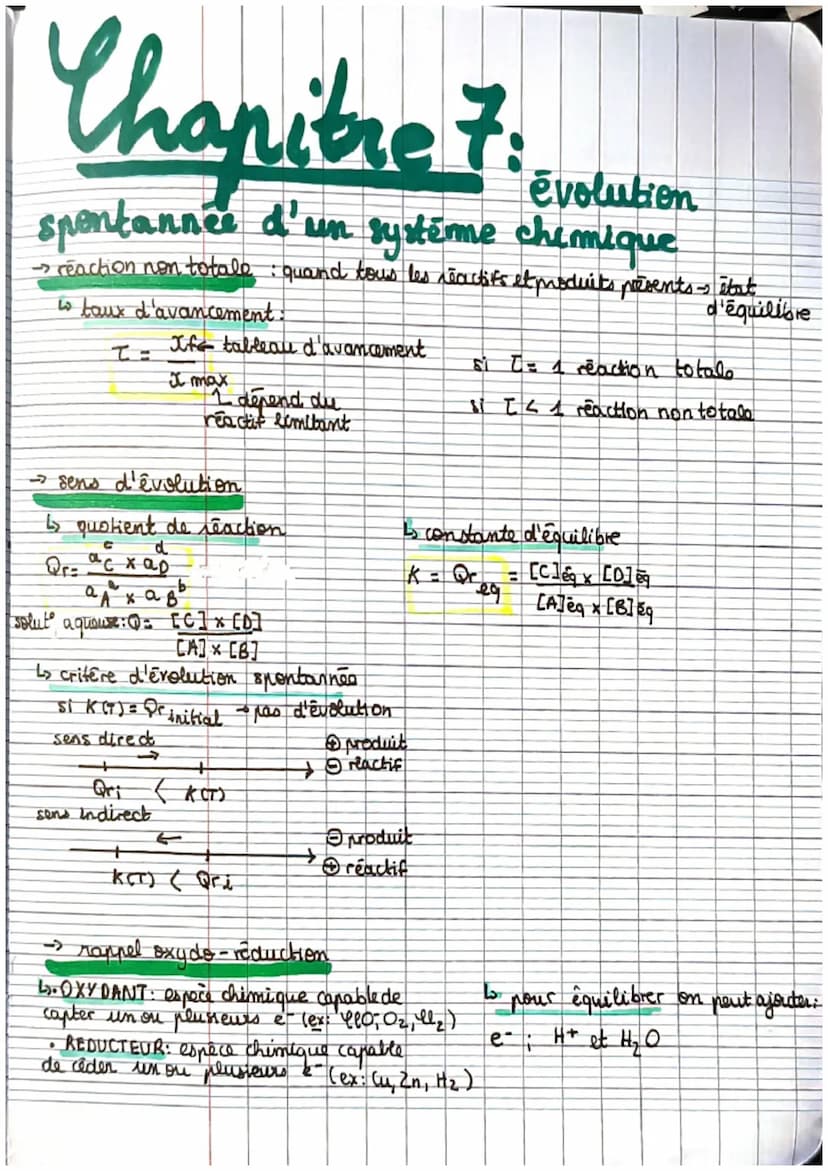 Chapitre 7:
évolution
spontannée d'un système chimique
→ réaction non totale : quand tous les réactifs et produits présents → état
d'équilibre
↳ taux d'avancement :
τ = xf ← tableau d'avancement
x max
↳ dépend du
réactif limitant
si τ = 1 réaction totale
si τ < 1 réaction non totale
→ sens d'évolution
↳ quotient de réaction
Qr = a_C^c x a_D^d
a_A^a x a_B^b
solut° aqueuse : Q = [C] x [D]
[A] x [B]
↳ constante d'équilibre
K = Qr eq = [C]éq x [D]éq
[A]éq x [B]éq
↳ critère d'évolution spontannée
si K(T) = Qr initial → pas d'évolution
sens direct
→
⊕ produit
⊖ réactif
Qri < K(T)
sens indirect
←
⊖ produit
⊕ réactif
K(T) < Qri
→ rappel oxydo-réduction
↳ • OXYDANT : espèce chimique capable de
capter un ou plusieurs e- (ex: ClO-, O2, Cl2)
• REDUCTEUR : espèce chimique capable
de céder un ou plusieurs e- (ex: Cu, Zn, H2)
↳ pour équilibrer on peut ajouter :
e- ; H+ et H2O